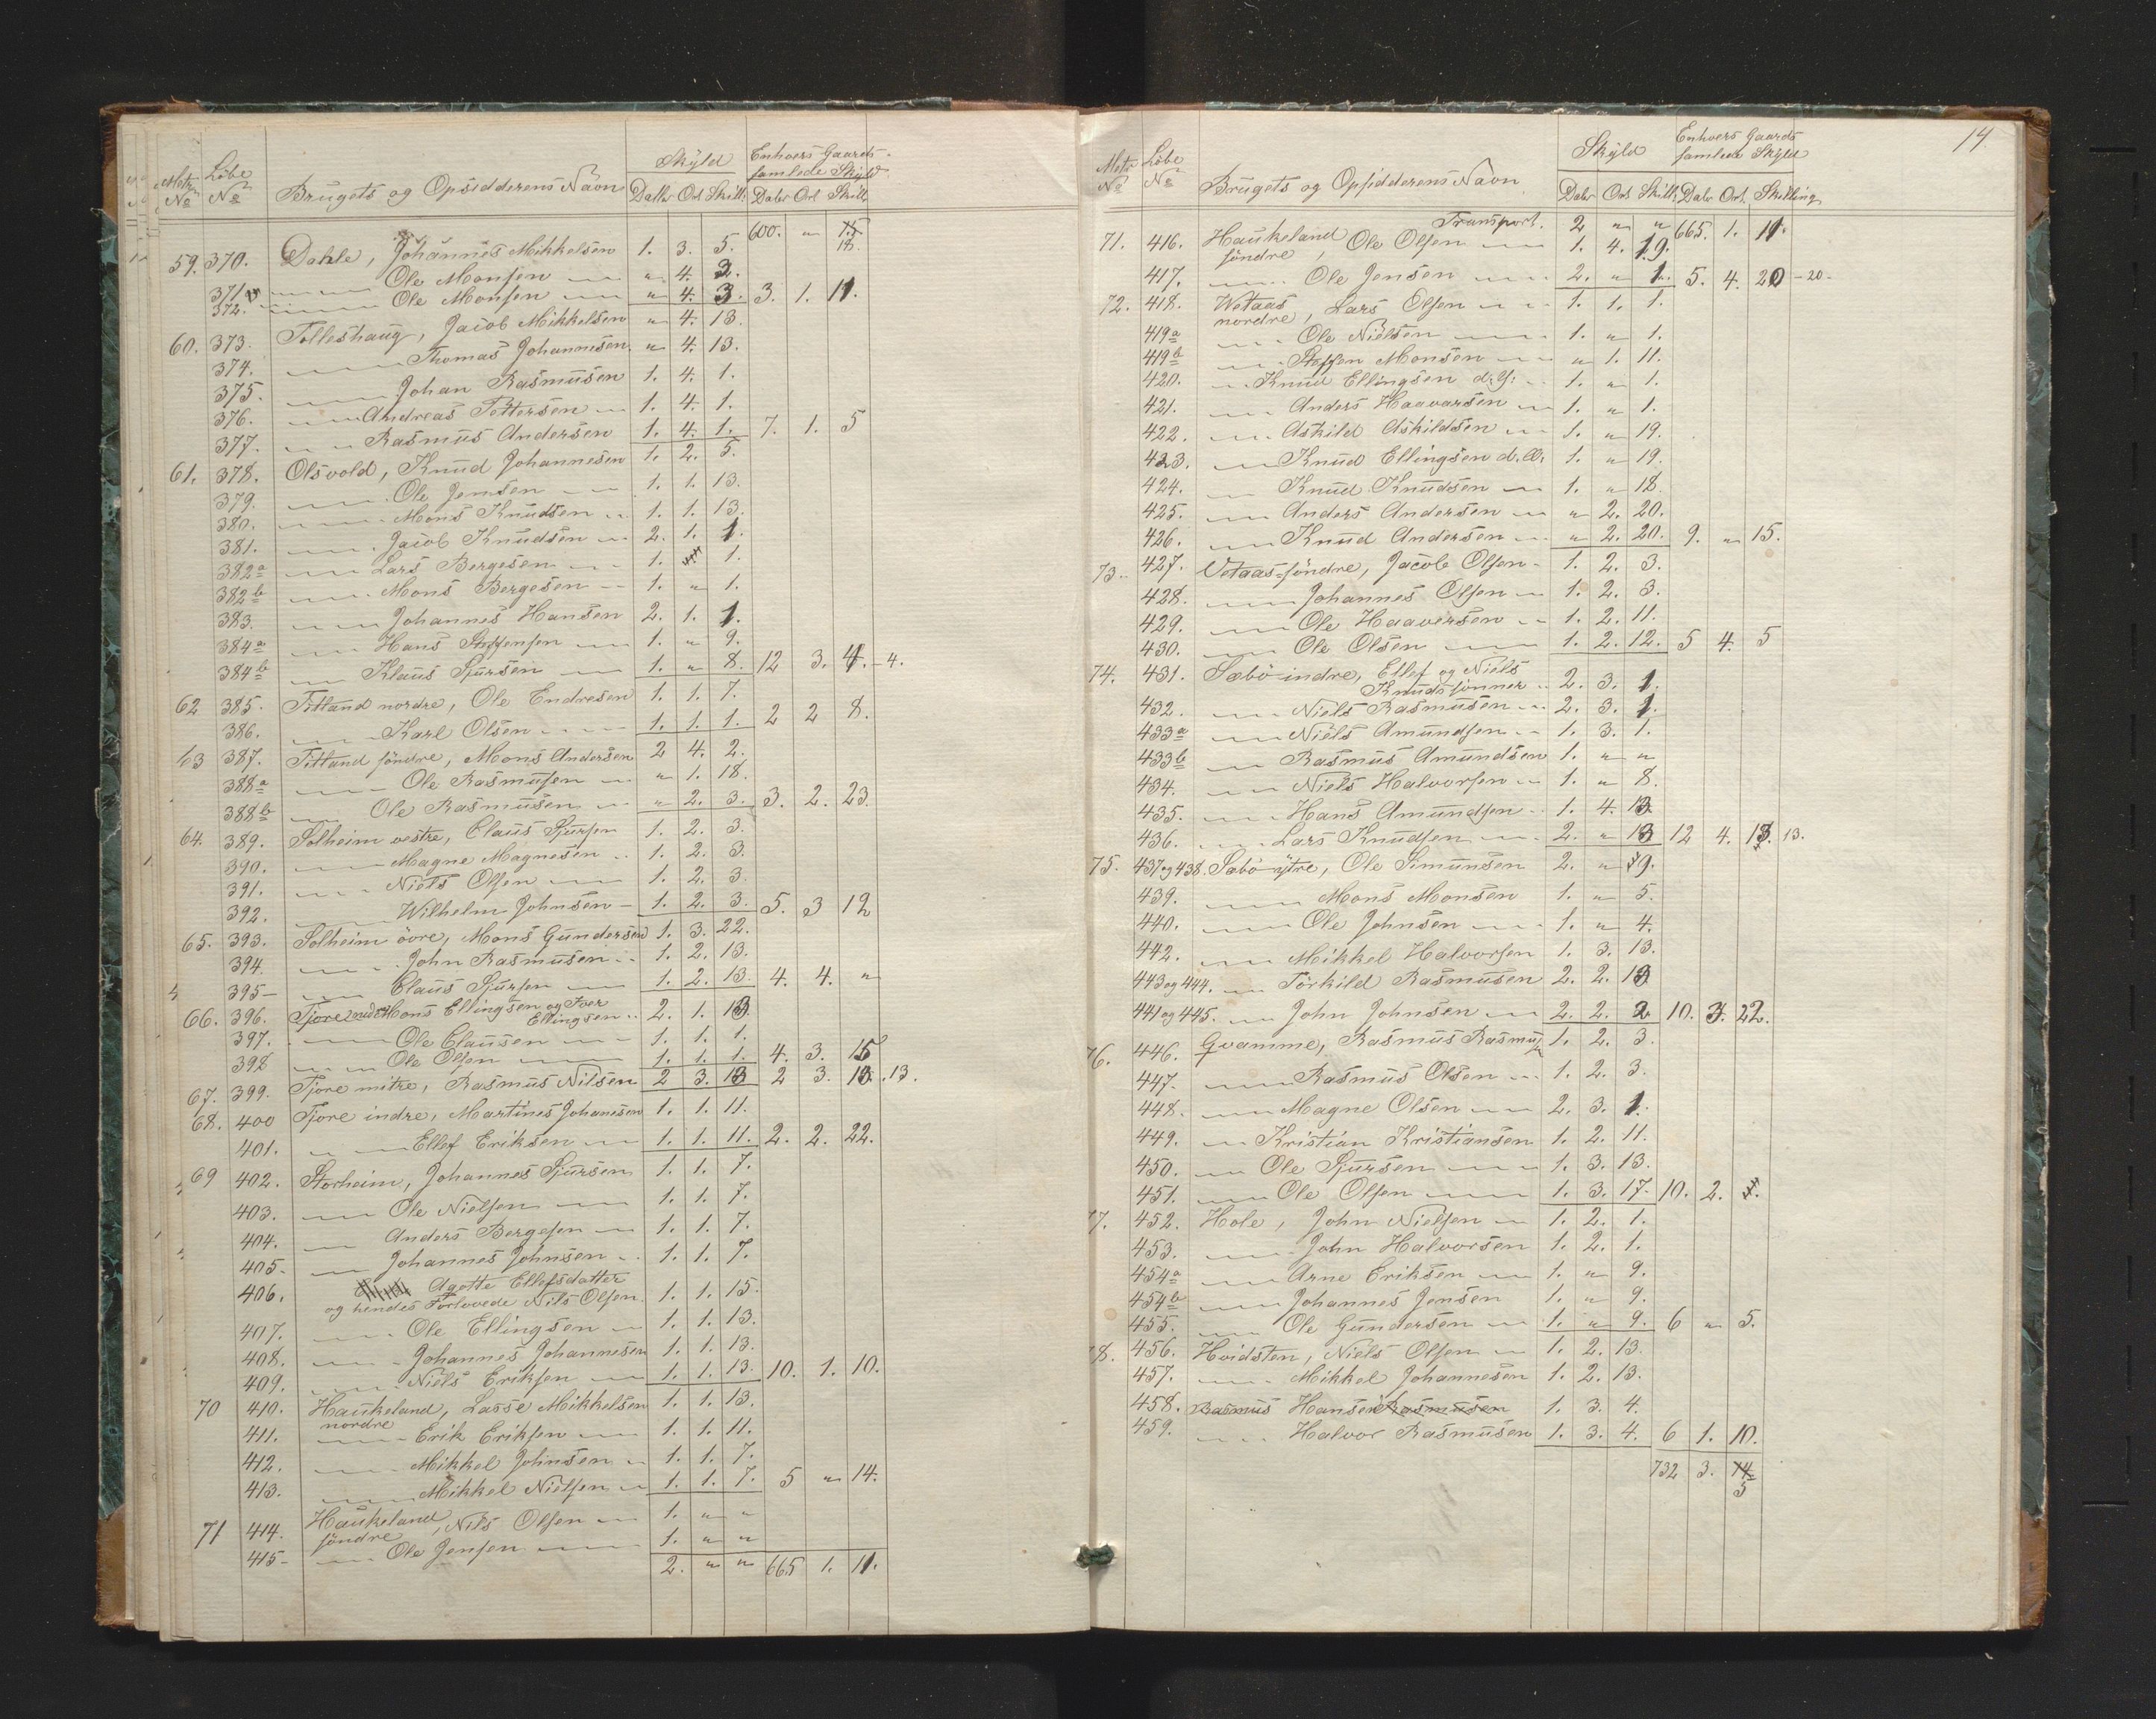 Matr. Löbe Skyld Enhvers Gaards
No No Brugets og Opsidderens Navn samlede Skyld
Daler Ort Skill: Daler Ort Skill
600. " 18.
59. 370. Dahle, Johannes Mikkelsen 1. 3. 5.
371 Ole Monsen " 4. 3.
372. Ole Monsen " 4. 3. 3. 1. 11.
60. 373. Tolleshaug, Jacob Mikkelsen " 4. 13.
374. Thomas Johannesen " 4. 13.
375. Johan Rasmusen 1. 4. 1.
376. Andreas Pettersen 1. 4. 1.
377. Rasmus Andersen 1. 4. 1. 7. 1. 5
61. 378. Olsvold, Knud Johannesen 1. 2. 5.
379. Ole Jensen 1. 1. 13.
380. Mons Knudsen 1. 1. 13.
381. Jacob Knudsen 2. 1. 1.
382a Lars Bergesen 1. " 1.
382b Mons Bergesen 1. " 1.
383. Johannes Hansen 2. 1. 1.
384a Hans Steffensen 1. " 9.
384b Klaus Sjursen 1. " 8. 12 3. 4. - 4.
62 385. Titland nordre, Ole Endresen 1. 1. 7.
386. Karl Olsen 1. 1. 1. 2 2 8.
63 387. Titland söndre, Mons Andersen 2 4. 2.
388a Ole Rasmusen " 1. 18.
388b Ole Rasmusen " 2. 3. 3. 2. 23.
64. 389. Solheim vestre, Claus Sjursen 1. 2. 3.
390. Magne Magnesen 1. 2. 3.
391. Niels Olsen 1. 2. 3.
392. Wilhelm Johnsen 1. 2. 3. 5. 3 12
65. 393. Solheim övre, Mons Gundersen 1. 3. 22.
394. John Rasmusen 1. 2. 13.
395 Claus Sjursen 1. 2. 13. 4. 4. "
66. 396. Tjore Mons Ellingsen og Iver
Ellingsen 2. 1. 13.
397. Ole Clausen 1. 1. 1.
398 Ole Olsen 1. 1. 1. 4. 3. 15
67. 399. Tjore mitre, Rasmus Nilsen 2 3. 13 2 3. 13. 13.
68. 400 Tjore indre, Martines Johanesen 1. 1. 11.
401. Ellef Eriksen 1. 1. 11. 2. 2. 22.
69 402. Storheim, Johannes Sjursen 1. 1. 7.
403. Ole Nielsen 1. 1. 7.
404. Anders Bergesen 1. 1. 7.
405. Johannes Johnsen 1. 1. 7.
406. Agotte Ellefsdatter
og hendes Forlovede Nils Olsen. 1. 1. 15.
407. Ole Ellingsen 1. 1. 13.
408. Johannes Johannesen 1. 1. 13.
409. Niels Eriksen 1. 1. 13. 10. 1. 10.
70 410. Haukeland, Lasse Mikkelsen 1. 1. 13.
nordre
411. Erik Eriksen 1. 1. 11.
412. Mikkel Johnsen 1. 1. 7.
413. Mikkel Nielsen 1. 1. 7. 5 " 14.
71 414. Haukeland söndre, Nils Olsen 1. " "
415 Ole Jensen 1. " "
2. " " 665 1. 11.
14
Matr. Löbe Skyld Enhvers Gaards
No No Brugets og Opsidderens Navn samlede Skyld
Daler Ort Skill: Daler Ort. Skilling
Transport. 2 " " 665. 1. 11.
71. 416. Haukeland söndre, Ole Olsen 1. 4. 19.
417. Ole Jensen 2. " 1. 5. 4. 20 - 20 -
72. 418. Wetaas nordre, Lars Olsen 1. 1. 1.
419a Ole Nielsen 1. " 1.
419b Steffen Monsen " 1. 11.
420. Knud Ellingsen d.y. 1. " 1.
421. Anders Haavarsen 1. " 1.
422. Askild Askildsen 1. " 19.
423. Knud Ellingsen d. Æ. 1. " 19.
424. Knud Knudsen 1. " 18.
425. Anders Andersen " 2. 20.
426. Knud Andersen " 2. 20. 9. " 15.
73. 427. Vetaas söndre, Jacob Olsen 1. 2. 3.
428. Johannes Olsen 1. 2. 3.
429. Ole Haaversen 1. 2. 11.
430. Ole Olsen 1. 2. 12. 5 4. 5
74. 431. Sæbö indre, Ellef og Niels
Knudssönner 2. 3. 1.
432. Niels Rasmusen 2. 3. 1.
433a Niels Amundsen 1. 3. 1.
433b Rasmus Amundsen 1. " "
434. Niels Halvorsen 1. " 8.
435. Hans Amundsen 1. 4. 13.
436. Lars Knudsen 2. " 13 12 4. 13. 13.
75. 437 og 438. Sæbö ytre, Ole Simunsen 2. " 9.
439. Mons Monsen 1. " 5.
440. Ole Johnsen 1. " 4.
442. Mikkel Halvorsen 1. 3. 13.
443 og 444. Törkild Rasmusen 2. 2. 13
441 og 445. John Johnsen 2. 2. 2 10. 3. 22.
76. 446. Qvamme, Rasmus Rasmus. 1. 2. 3.
447. Rasmus Olsen 1. 2. 3.
448. Magne Olsen 2. 3. 1.
449. Kristian Kristiansen 1. 2. 11.
450. Ole Sjursen 1. 3. 13.
451. Ole Olsen 1. 3. 17. 10. 2.
77. 452. Hole, John Nielsen 1. 2. 1.
453. John Halvorsen 1. 2. 1.
454a Arne Eriksen 1. " 9.
454b Johannes Jensen 1. " 9.
455. Ole Gundersen 1. " 9. 6 " 5.
78. 456. Hvidsten, Niels Olsen 1. 2. 13.
457. Mikkel Johannesen 1. 2. 13.
458. Rasmus Hansen Rasmusen 1. 3. 4.
459. Halvor Rasmusen 1. 3. 4. 6 1. 10.
732 3. 14
5